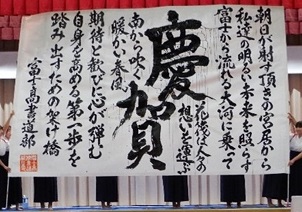 朝日が射す頂きの宮居から
私達の明るい未来を照らす
富士から流れる大河に乗って
花筏は人々の
想いを運ぶ
慶賀
南から吹く
暖かい春風
期待と歓びに心が弾む
自身を高める第一歩を
踏み出すための架け橋
富士高書道部